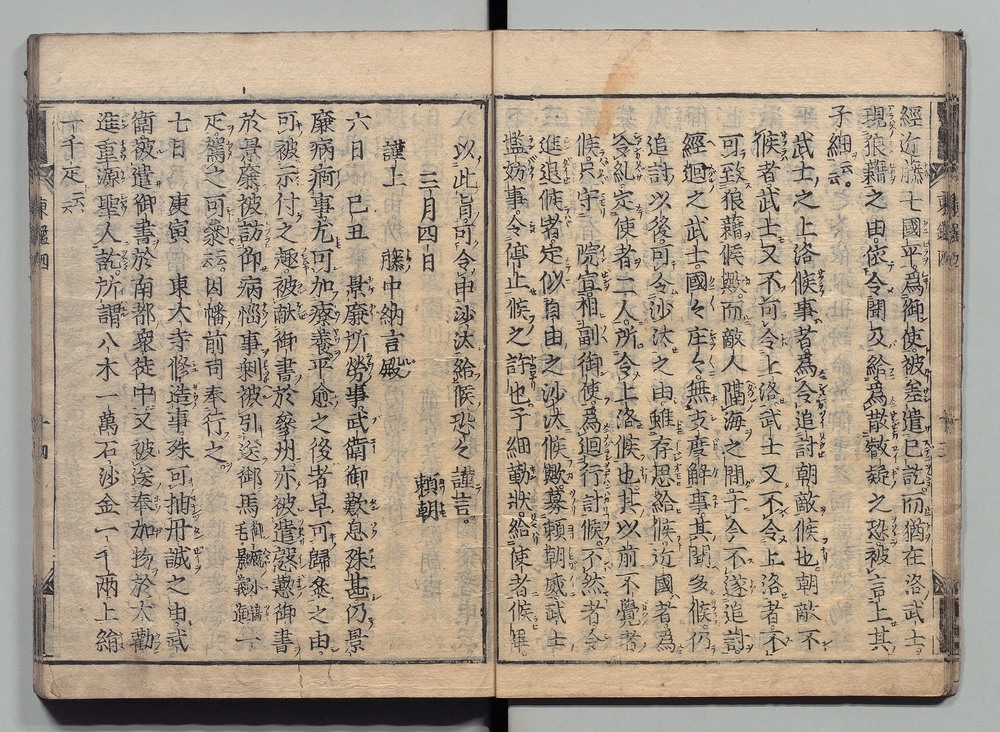 經近藤七國平爲御使被差遣已訖而猶在洛武士
現狼藉之由依令聞及給爲散叡疑之恐被言上其
子細云云
武士之上洛候事者爲令追討朝敵候也朝敵不
候者武士又不可令上洛武士又不令上洛者不
可致狼藉候歟而敵人隔海之間于今不遂追討
經廻之武士國々庄々無支度解事其聞多候仍
追討以後可令沙汰之由雖存思給候近國者爲
令糺定使者二人所令上洛候也其以前不覺者
候只守 院宣相副御使爲廻行計候不然者令
進退候者定似自由之沙汰候歟募頼朝威武士
濫妨事令停止候之計也子細勒狀給使者候畢
以此旨可令申沙汰給候恐々謹言
三月四日 頼朝
謹上 藤中納言殿
六日 己丑 景廉所勞事武衛御歎息殊甚仍景
廉病痾事尤可加療養平愈之後者早可歸參之由
可被示付之趣被献御書於參州亦被遣慇懃御書
於景廉被訪仰病惱事剩被引送御馬一
疋駕之可參云云因幡前司奉行之
七日 庚寅 東大寺修造事殊可抽丹誠之由武
衛被遣御書於南都衆徒中又被送奉加物於大勸
進重源聖人訖所謂八木一萬石沙金一千兩上絹
一千疋云云
東鑑四
十四